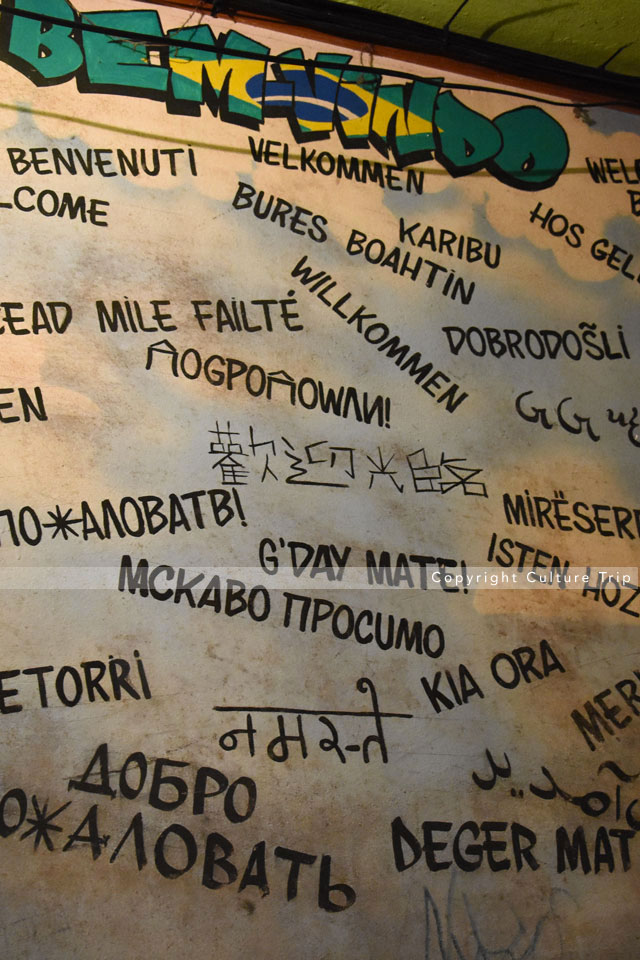 BEM-VINDO
BENVENUTI
VELKOMMEN
WEL
B
-COME
BURES BOAHTIN
KARIBU
HOS GEL
CEAD MILE FAILTÉ
WILLKOMMEN
DOBRODOŠLI
EN
歡迎光臨
ПО*АЛОВАТВ!
MIRËSER
G'DAY MATE!
ISTEN HOZ
Copyright Culture Trip
МСКАВО ПРОСИМО
ETORRI
KIA ORA
MER
नमस्ते
ДОБРО
ОЖАЛОВАТЬ
DEGER MAT